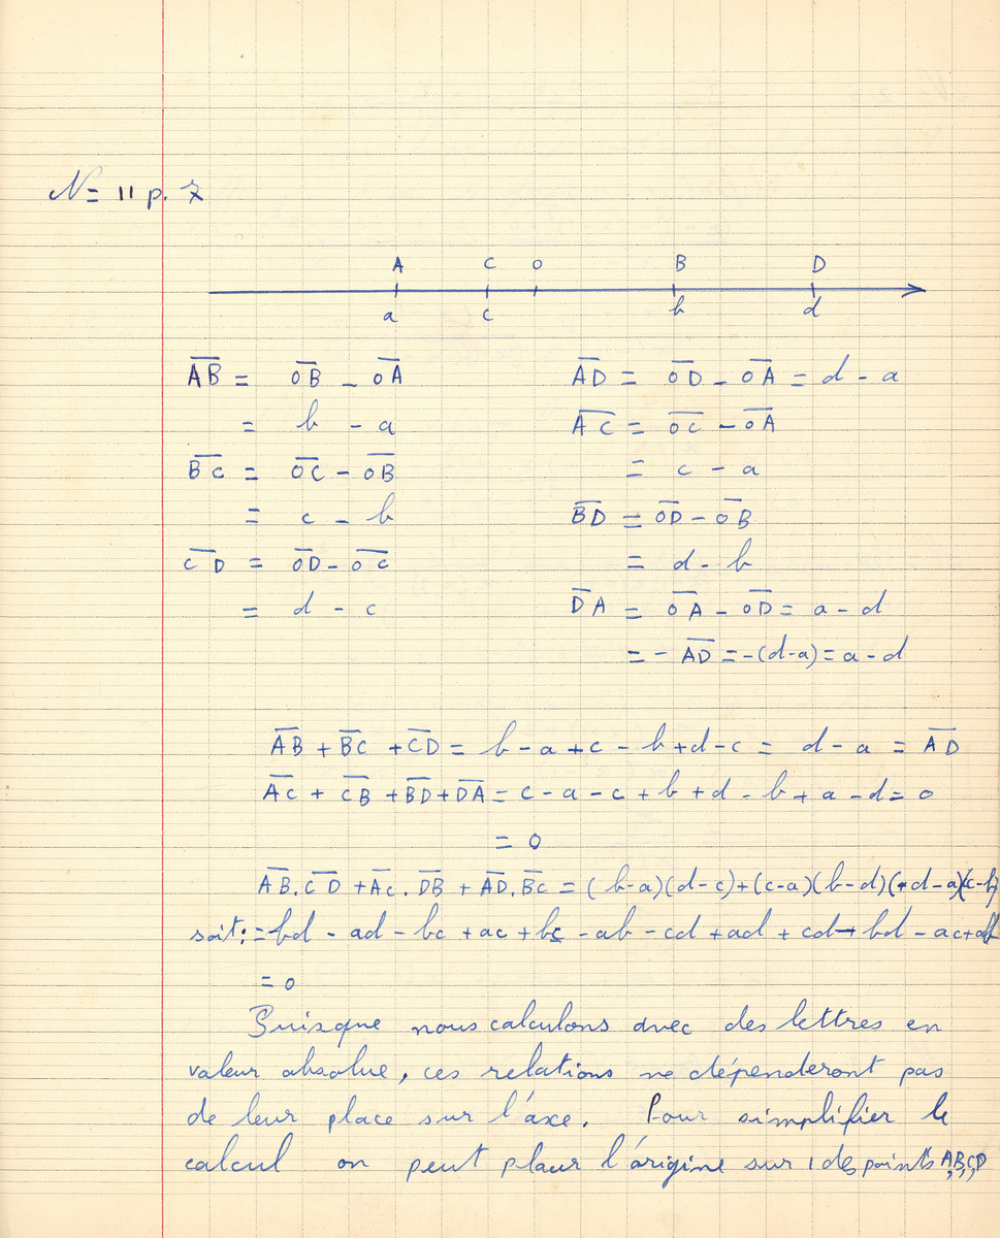 N= 11 p. 7
A C O B D
a c b d
A̅B̅ = O̅B̅ - O̅A̅
= b - a
B̅C̅ = O̅C̅ - O̅B̅
= c - b
C̅D̅ = O̅D̅ - O̅C̅
= d - c
A̅D̅ = O̅D̅ - O̅A̅ = d - a
A̅C̅ = O̅C̅ - O̅A̅
= c - a
B̅D̅ = O̅D̅ - O̅B̅
= d - b
D̅A̅ = O̅A̅ - O̅D̅ = a - d
= - A̅D̅ = -(d-a) = a - d
A̅B̅ + B̅C̅ + C̅D̅ = b - a + c - b + d - c = d - a = A̅D̅
A̅C̅ + C̅B̅ + B̅D̅ + D̅A̅ = c - a - c + b + d - b + a - d = 0
= 0
A̅B̅.C̅D̅ + A̅C̅.D̅B̅ + A̅D̅.B̅C̅ = (b-a)(d-c)+(c-a)(b-d)(+d-a)(c-b)
soit: = bd - ad - bc + ac + bc - ab - cd + ad + cd - bd - ac + ab
= 0
Puisque nous calculons avec des lettres en
valeur absolue, ces relations ne dépenderont pas
de leur place sur l'axe. Pour simplifier le
calcul on peut placer l'origine sur 1 des points A,B,C,D